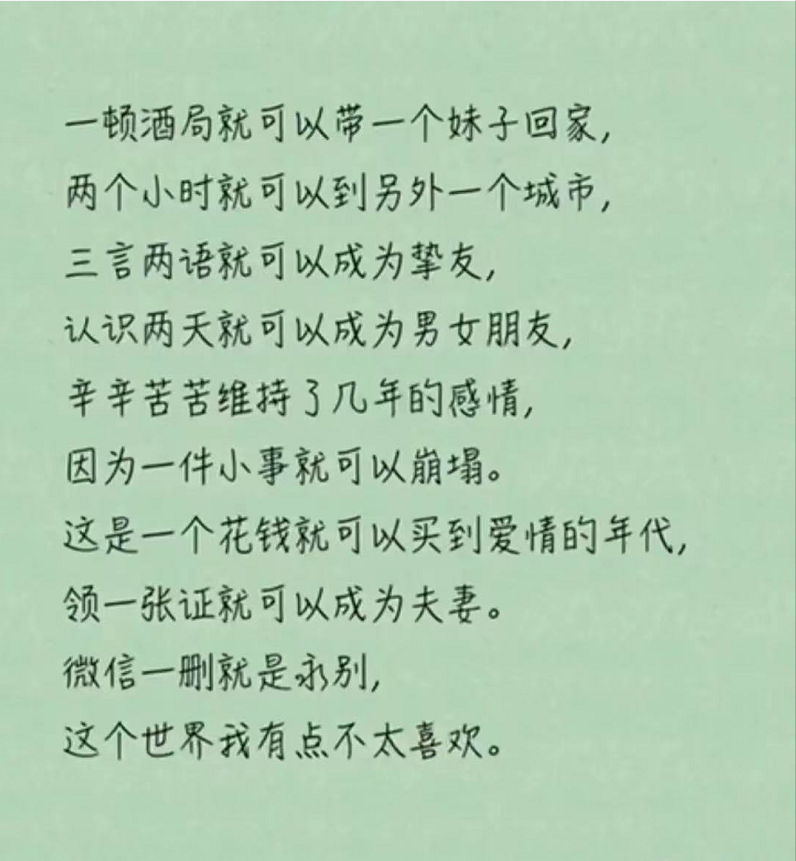 一顿酒局就可以带一个妹子回家,
两个小时就可以到另外一个城市,
三言两语就可以成为挚友,
认识两天就可以成为男女朋友,
辛辛苦苦维持了几年的感情,
因为一件小事就可以崩塌。
这是一个花钱就可以买到爱情的年代,
领一张证就可以成为夫妻。
微信一删就是永别,
这个世界我有点不太喜欢。